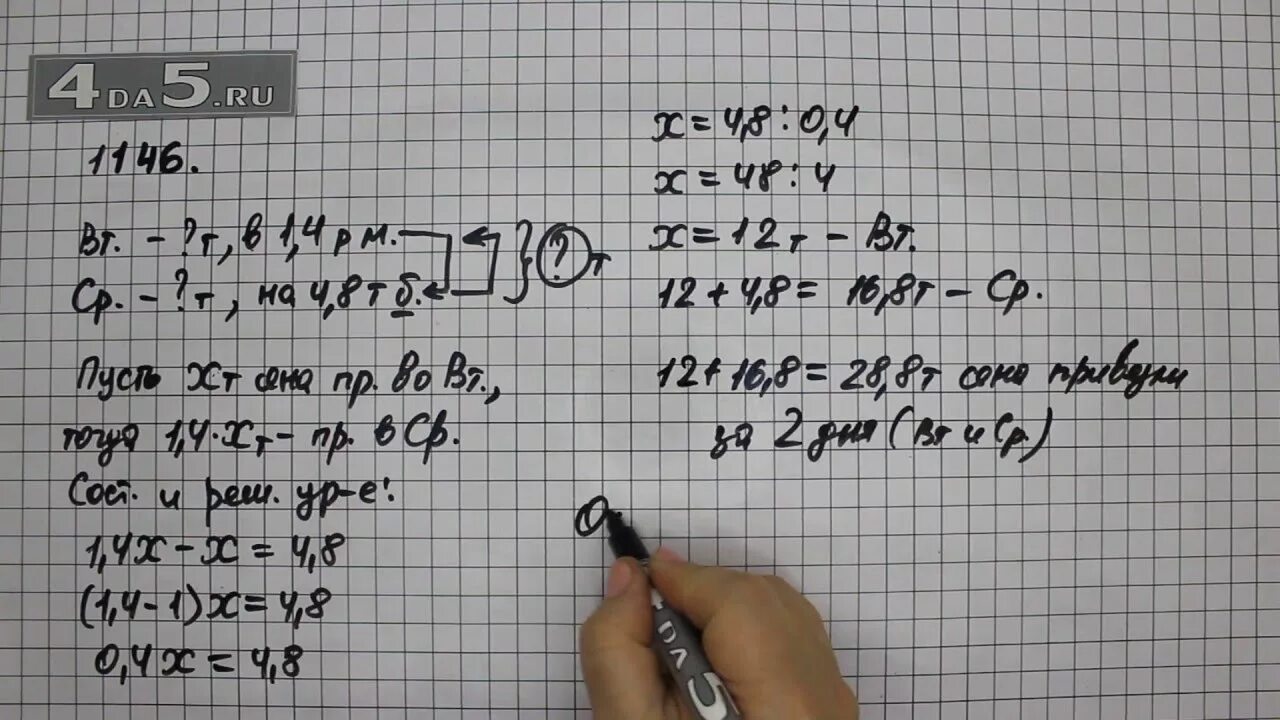 4DA5.RU
1146.
Вт. - ?т, в 1,4 р м.
Ср. - ?т, на 4,8т б.
? т
Пусть Xт сена пр. во Вт.,
тогда 1,4·Xт - пр. в Ср.
Сост. и реш. ур-е:
1,4x - x = 4,8
(1,4-1)x = 4,8
0,4x = 4,8
x = 4,8 : 0,4
x = 48 : 4
x = 12т - Вт.
12 + 4,8 = 16,8т - Ср.
12 + 16,8 = 28,8т сена привезли
за 2 дня (Вт и Ср.)
О
DA5